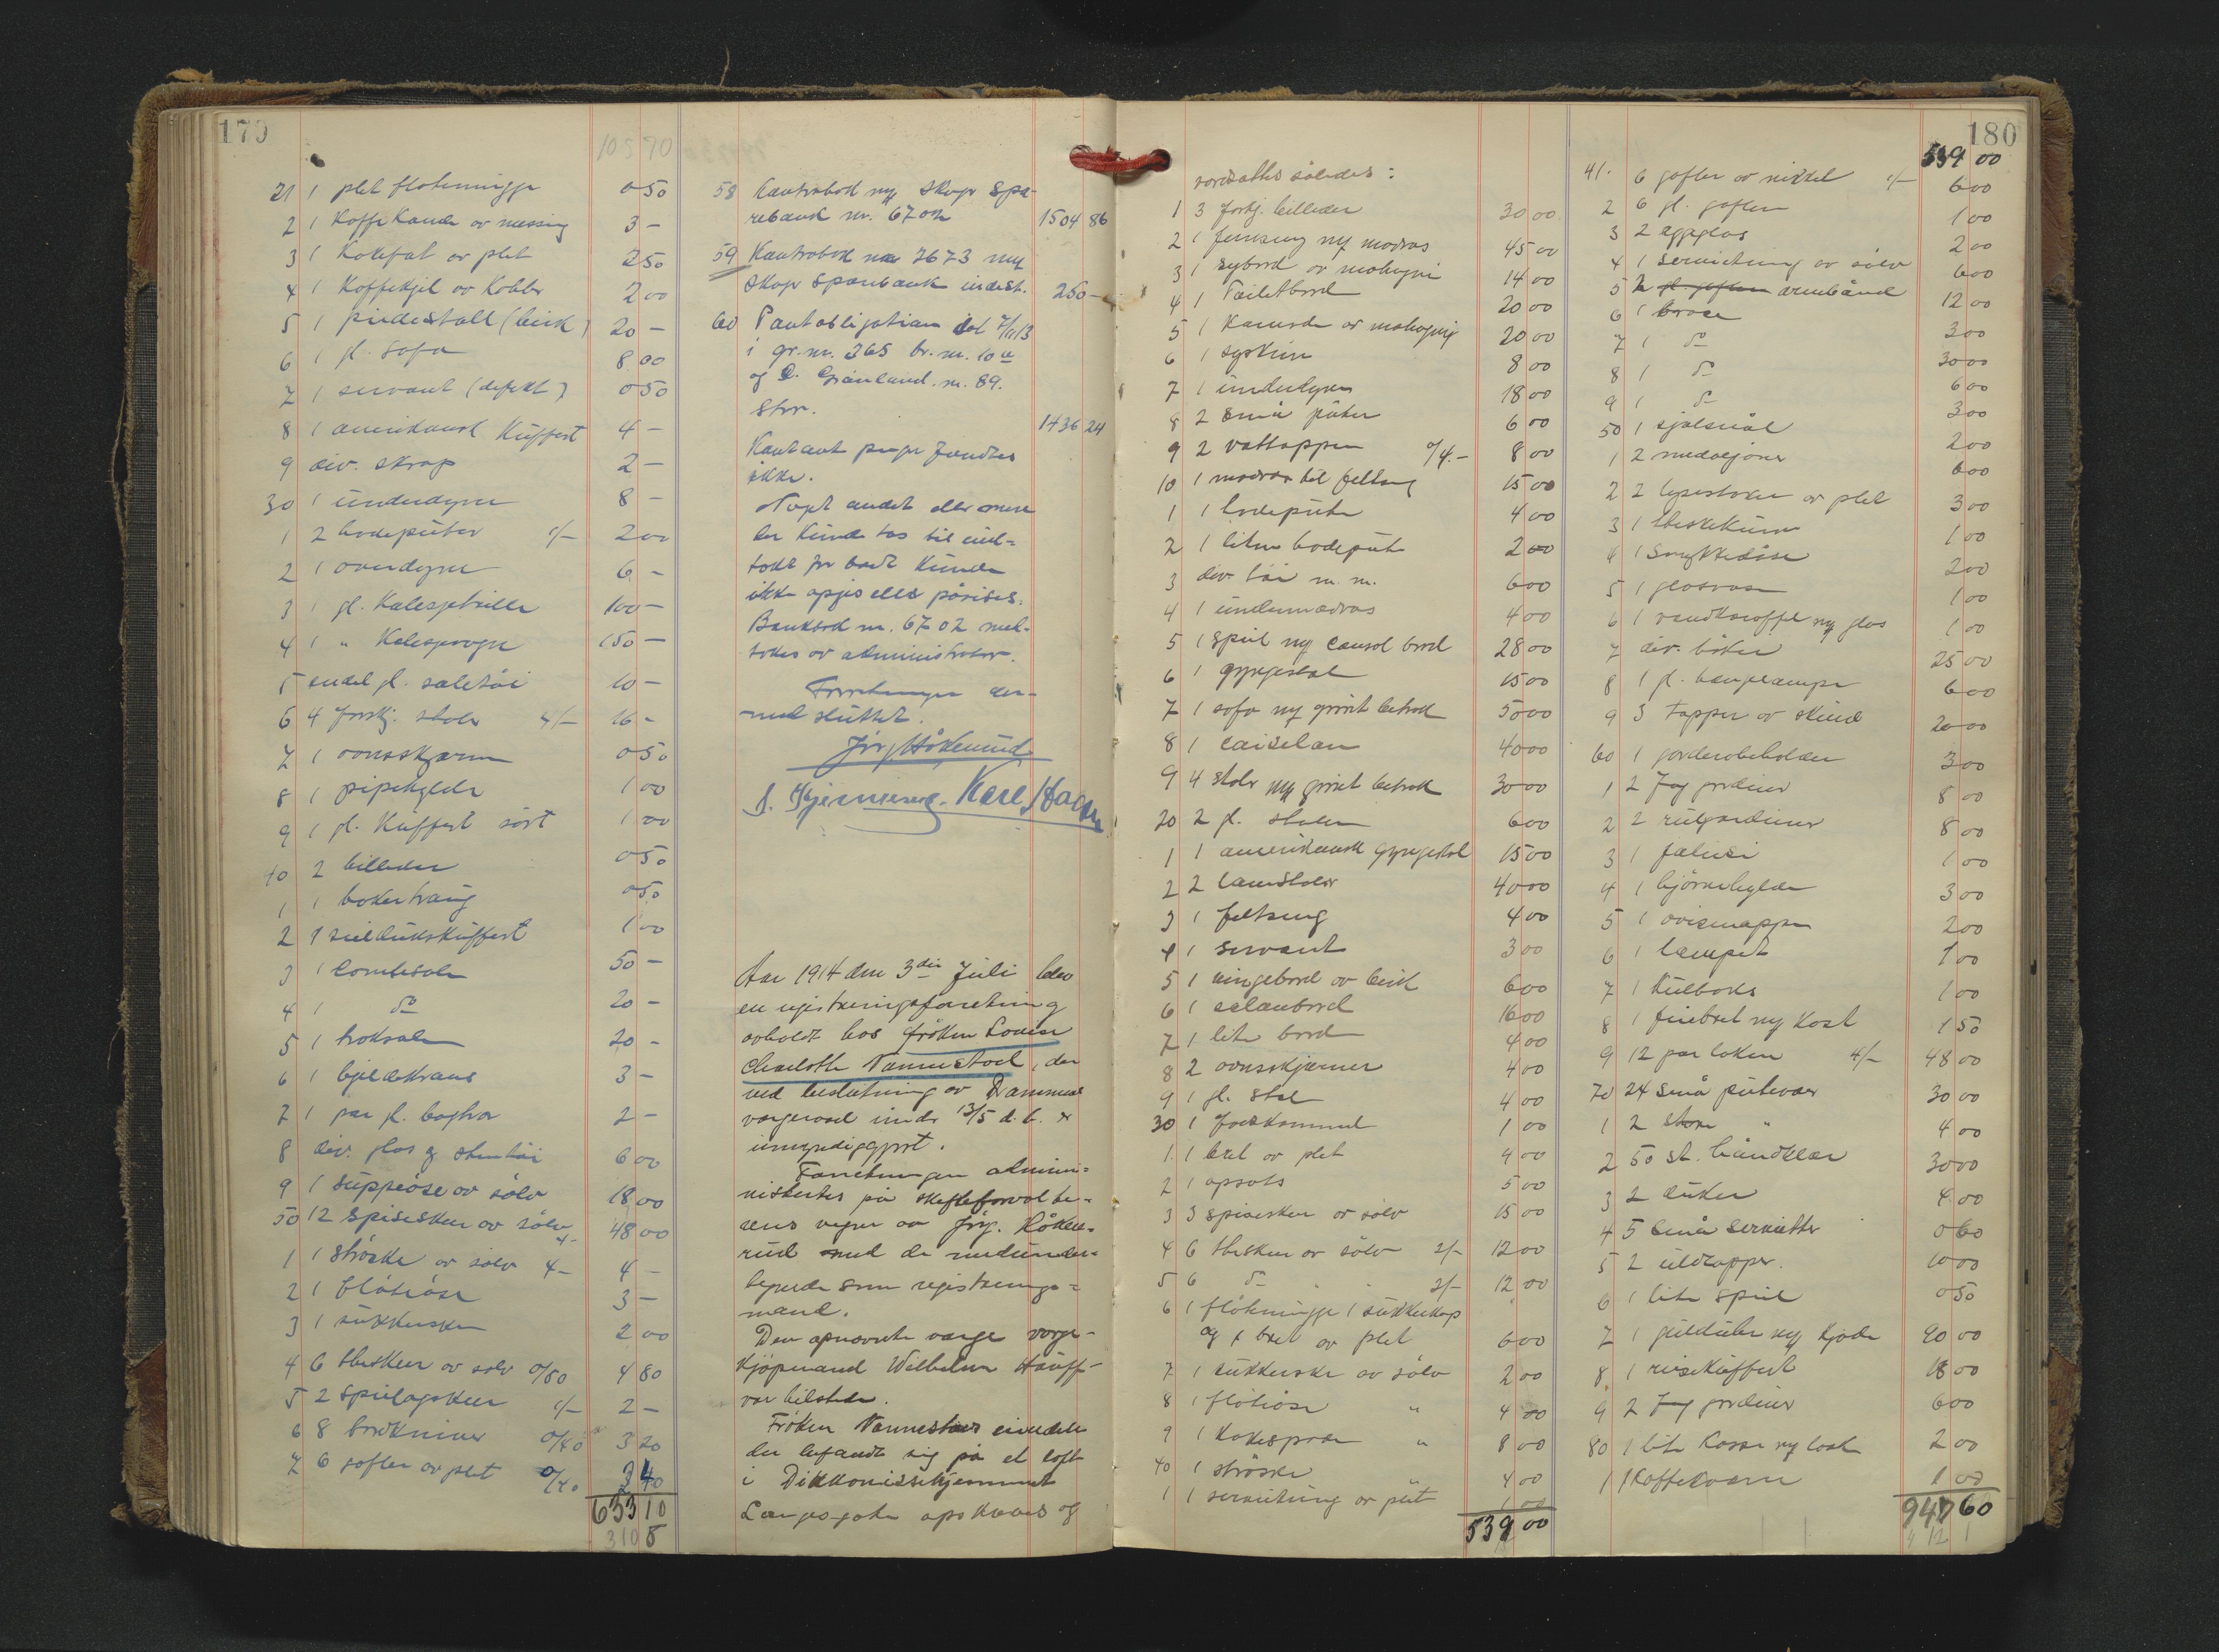 179
105 70
21 1 plet fløtemugge 0 50
2 1 Kaffekande av messing 3 –
3 1 Kakefat av plet 2 50
4 1 Kaffekjel av Kobber 2 00
5 1 pidestall (birk) 20 –
6 1 gl. sofa 8 00
7 1 servant (defekt) 0 50
8 1 amerikansk Kuffert 4 –
9 div. skrap 2 –
30 1 underdyne 8 –
1 2 hodeputer 1/– 2 00
2 1 overdyne 6 –
3 1 gl. Kalesjetrille 100 –
4 1 " Kalesjevogn 150 –
5 endel gl. seletøi 10 –
6 4 forskj. stoler 4/– 16 –
7 1 ovnsskjærm 0 50
8 1 pipehylde 1 00
9 1 gl. Kuffert sort 1 00
40 2 billeder 0 50
1 1 bokertraug 0 50
2 1 seildukskuffert 1 00
3 1 50 –
4 1 do 20 –
5 1 20 –
6 1 bjeldekrans 3 –
7 1 par gl. 2 –
8 div. glas & stentøi 6 00
9 1 suppeøse av sølv 18 00
50 12 spiseskeer av sølv 4– 48 00
1 1 strøske av sølv 4– 4 –
2 1 fløteøse 3 –
3 1 sukkerske 2 00
4 6 theskeer av sølv 0/80 4 80
5 2 1/– 2 –
6 8 bordkniver 0/40 3 20
7 6 gafler av plet 0/40 2 40
633 10
310 5
58 Kontrabok med Skogr Spa-
rebank nr. 6702 1504 86
59 Kontrabok nr 7673 med
Skogr Sparebank indest. 250 –
60 Pantobligation dat 7/11 13
i gr.nr. 265 br.nr. 10 a
og Grønland nr. 89.
Stor. 1436 24
Kontant penger fandtes
ikke.
Noget andet eller mere
der kunde tas til ind-
tækt for boet kunde
ikke opgis eller påvises.
Bankbok nr. 6702 med-
tokes av administrator.
Forretningen der-
med sluttet.
Jørg Håkerud
Karl
Aar 1914 den 3die Juli blev
en registreringsforretning
avholdt hos frøken Louise
Charlotte Vannestad, der
ved beslutning av Drammens
vergeraad under 13/5 d. å. er
umyndiggjort.
Forretningen admini-
nistrertes på skifteforvalte-
rens vegne av Jørg. Håke-
rud med de medunder-
tegnede som registrerings-
mænd.
Den opnævnte verge verge-
kjøpmand Wilhelm Hauff
var tilstede.
Frøken Vannestads eiendele
der befandt sig på et loft
i Diakonissehjemmet
Langesgate opskreves og
180
værdsattes således:
1 3 forskj. billeder 30 00
2 1 jernseng med madras 45 00
3 1 sybord av mahogni 14 00
4 1 Toiletbord 20 00
5 1 Komode av mahogni 20 00
6 1 syskrin 8 00
7 1 underdyne 18 00
8 2 små puter 6 00
9 2 vattepper á/4.– 8 00
10 1 madras til feltseng 15 00
1 1 hodepute 4 00
2 1 liten hodepute 2 00
3 div. tøi m. m. 6 00
4 1 undermadras 4 00
5 1 speil med consol bord 28 00
6 1 gyngestol 15 00
7 1 sofa med grønt betræk 50 00
8 1 40 00
9 4 stoler med grønt betræk 30 00
20 2 gl. stoler 6 00
1 1 amerikansk gyngestol 15 00
2 2 lænstoler 40 00
3 1 feltseng 4 00
4 1 servant 3 00
5 1 bord av birk 6 00
6 1 salonbord 16 00
7 1 lite bord 4 00
8 2 ovnsskjærmer 4 00
9 1 gl. stol 4 00
30 1 1 00
1 1 bret av plet 4 00
2 1 opsats 5 00
3 3 spiseskeer av sølv 15 00
4 6 theskeer av sølv 2/– 12 00
5 6 do " 2/– 12 00
6 1 fløtemugge 1 sukkerkop
og 1 bret av plet 6 00
7 1 sukkerske av sølv 2 00
8 1 fløteøse " 4 00
9 1 Kakespade " 8 00
40 1 strøske " 4 00
1 1 servietring av plet 1 00
539 00
539 00
41. 6 gafler av nikkel 1/– 6 00
2 6 gl. gafler 1 00
3 2 eggeglas 2 00
4 1 serviettring av sølv 6 00
5 2 gl. gafler armbånd 12 00
6 1 broce 3 00
7 1 do 30 00
8 1 do 6 00
9 1 do 3 00
50 1 sjalsnål 2 00
1 2 medaljoner 6 00
2 2 lysestaker av plet 3 00
3 1 1 00
4 1 Smykkedåse 2 00
5 1 glasvase 1 00
6 1 vandkaraffel med glas 1 00
7 div. bøker 25 00
8 1 gl. hengelampe 6 00
9 3 tepper av skind 20 00
60 1 garderobeholder 3 00
1 2 Fag gardiner 8 00
2 2 rulgardiner 8 00
3 1 jalusi 1 00
4 1 hjørnehylde 3 00
5 1 avismappe 2 00
6 1 lampet 1 00
7 1 Kulboks 1 00
8 1 feiebret med Kost 1 50
9 12 par laken 4/– 48 00
70 24 små putevar 30 00
1 2 store " 4 00
2 50 st. håndklær 30 00
3 2 duker 4 00
4 5 små servietter 0 60
5 2 uldtepper. 10 00
6 1 lite speil 0 50
7 1 gulduhr med Kjede 90 00
8 1 reisekuffert 18 00
9 2 Fag gardiner 6 00
80 1 lite Kasse med laak 2 00
1 1 Kaffekvern 1 00
947 60